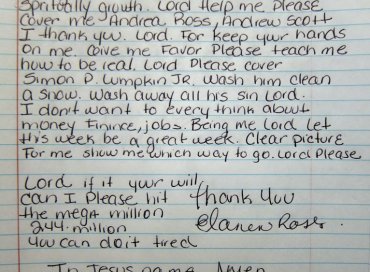 Spiritually growth. Lord Help me Please
Cover me Andrea Ross, Andrew Scott
I thank yuu. Lord. For keep your hands
on me. Give me Favor Please teach me
how to be real. Lord Please cover
Simon P. Lumpkin JR. Wash him clean
a snow. Wash away all his sin Lord.
I don't want to every think abuut
money Finince, jobs. Being me Lord let
this week be a great week. Clear picture
For me show me which way to go. Lord Please
Lord if it yuur will
can I Please hit thank Yuu
the mega million
244. million Ross
yuu can do it tired
In Jesus name Amen